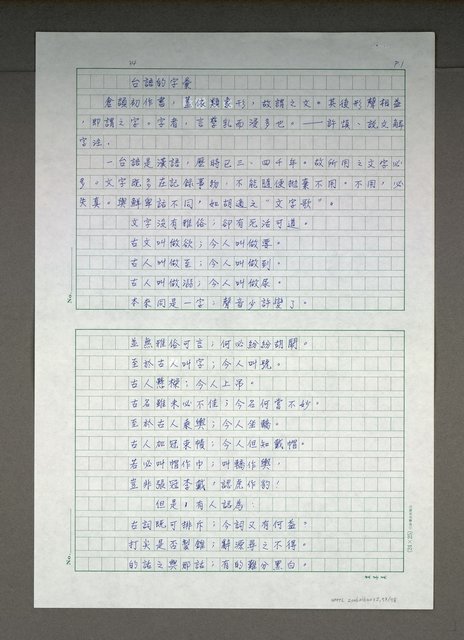 24
P.1
台語的字彙
倉頡初作書，蓋依類象形，故謂之文。其後形聲相益
，即謂之字。字者，言孳乳而浸多也。——許慎、說文解
字注．
一台語是漢語，歷時已三、四千年。故所用之文字必
多。文字既多在記錄事物，不能隨便拋棄不用。不用，必
失真。與鮮軍話不同，如胡適之"文字歌"。
文字沒有雅俗；卻有死活可道。
古文叫做欲；今人叫做要。
古人叫做至；今人叫做到。
古人叫做溺；今人叫做尿。
本來同是一字；聲音少許變了。
No.
並無雅俗可言；何必紛紛胡鬧。
至於古人叫字；今人叫號。
古人懸樑；今人上吊。
古名雖未必不佳；今名何嘗不妙。
至於古人乘輿；今人坐轎。
古人加冠束幘；今人但知戴帽。
若必叫帽作巾；叫轎作輿，
豈非張冠李戴，認虎作豹！
但是，有人認為：
古詞既可排斥；今詞又有何益。
打尖是否製錐；辭源尋之不得。
的話之與那話；有的難分黑白。
No.
(24×25)